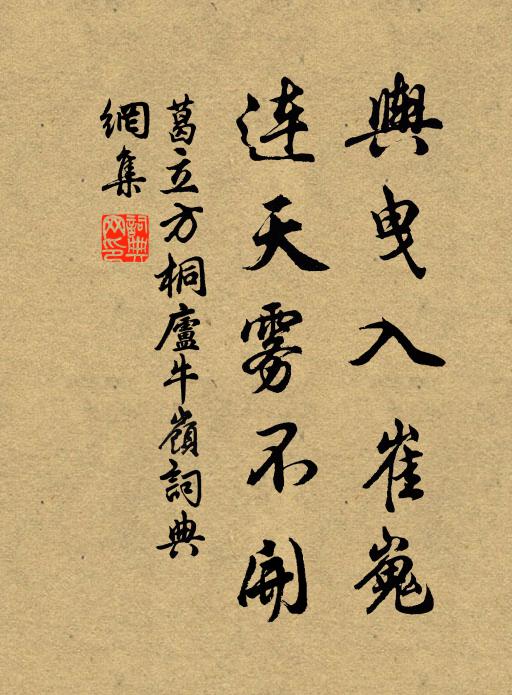 輿曳入崔嵬
連天雾不開
葛立方桐廬牛嶺詞典
網集
詞典网印